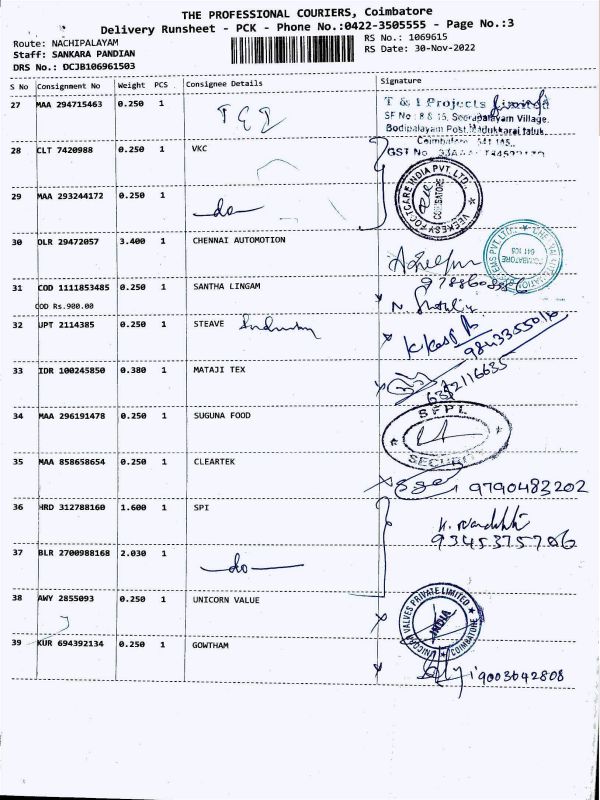 THE PROFESSIONAL COURIERS, Coimbatore
Delivery Runsheet - PCK - Phone No.:0422-3505555 - Page No.:3
Route: NACHIPALAYAM
RS No.: 1069615
Staff: SANKARA PANDIAN
RS Date: 30-Nov-2022
DRS No.: DCJB106961503
S No Consignment No Weight PCS Consignee Details Signature
27 MAA 294715463 0.250 1
T & I Projects Limited
SF No : 8 & 15, Seerapalayam Village,
Bodipalayam Post, Madukkarai taluk,
Coimbatore 641 105.
GST No
28 CLT 7420988 0.250 1 VKC
29 MAA 293244172 0.250 1 do
VEEKESY FOOTCARE INDIA PVT. LTD.
COIMBATORE
30 DLR 29472057 3.400 1 CHENNAI AUTOMOTION
COIMBATORE
641 105
31 COD 1111853485 0.250 1 SANTHA LINGAM
COD Rs.900.00
32 UPT 2114385 0.250 1 STEAVE Industry
33 IDR 100245850 0.380 1 MATAJI TEX
6352116635
34 MAA 296191478 0.250 1 SUGUNA FOOD
SFPL
SECURITY
35 MAA 858658654 0.250 1 CLEARTEK
9790483202
36 HRD 312788160 1.600 1 SPI
37 BLR 2700988168 2.030 1 do
38 AWY 2855093 0.250 1 UNICORN VALUE
UNICORN VALVES PRIVATE LIMITED
INDIA
COIMBATORE
39 KUR 694392134 0.250 1 GOWTHAM
9003642808